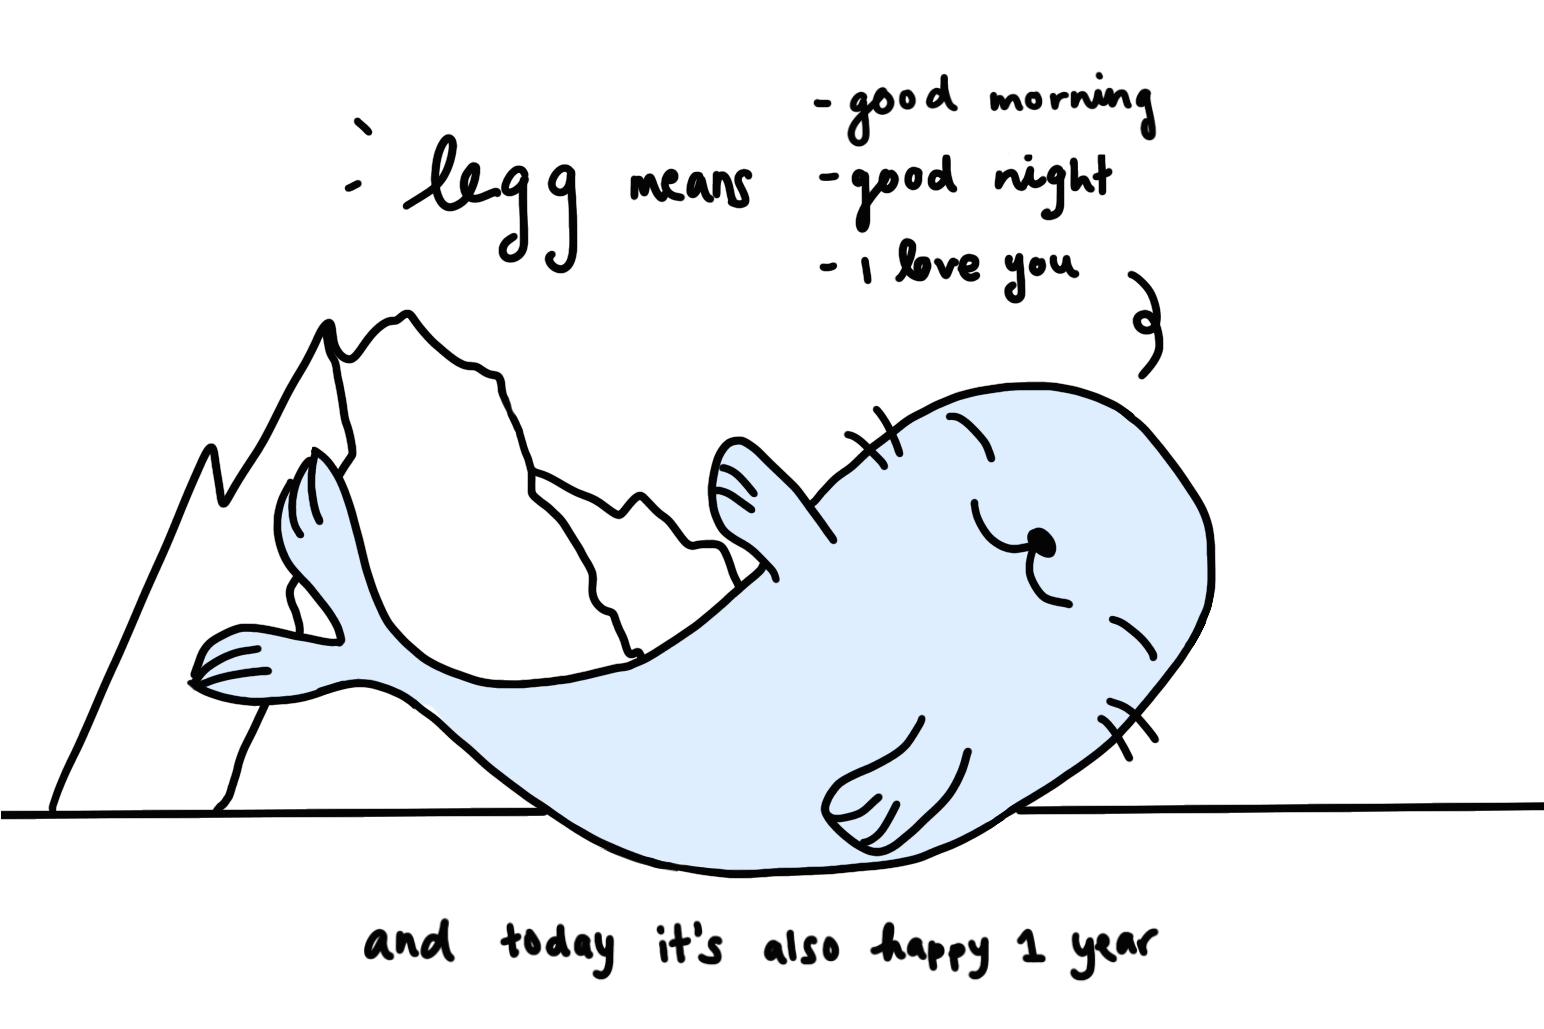 legg means
- good morning
- good night
- i love you
and today it's also happy 1 year